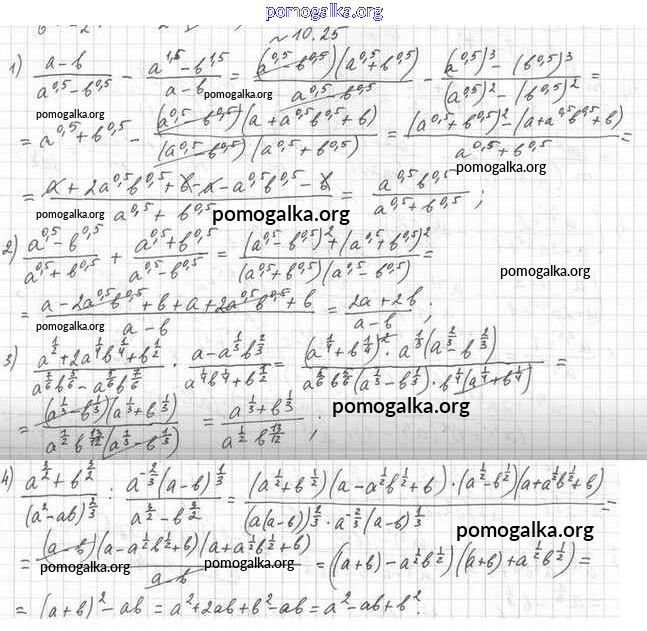 pomogalka.org
~ 10.25
1) \frac{a-b}{a^{0,5}-b^{0,5}} - \frac{a^{1,5}-b^{1,5}}{a-b} = \frac{(a^{0,5}-b^{0,5})(a^{0,5}+b^{0,5})}{a^{0,5}-b^{0,5}} - \frac{(a^{0,5})^3-(b^{0,5})^3}{(a^{0,5})^2-(b^{0,5})^2} =
pomogalka.org
= a^{0,5}+b^{0,5} - \frac{(a^{0,5}-b^{0,5})(a+a^{0,5}b^{0,5}+b)}{(a^{0,5}-b^{0,5})(a^{0,5}+b^{0,5})} = \frac{(a^{0,5}+b^{0,5})^2-(a+a^{0,5}b^{0,5}+b)}{a^{0,5}+b^{0,5}} =
pomogalka.org
= \frac{a+2a^{0,5}b^{0,5}+b-a-a^{0,5}b^{0,5}-b}{a^{0,5}+b^{0,5}} = \frac{a^{0,5}b^{0,5}}{a^{0,5}+b^{0,5}};
pomogalka.org pomogalka.org
2) \frac{a^{0,5}-b^{0,5}}{a^{0,5}+b^{0,5}} + \frac{a^{0,5}+b^{0,5}}{a^{0,5}-b^{0,5}} = \frac{(a^{0,5}-b^{0,5})^2+(a^{0,5}+b^{0,5})^2}{(a^{0,5}+b^{0,5})(a^{0,5}-b^{0,5})} =
pomogalka.org
= \frac{a-2a^{0,5}b^{0,5}+b+a+2a^{0,5}b^{0,5}+b}{a-b} = \frac{2a+2b}{a-b};
pomogalka.org
3) \frac{a^{\frac{1}{2}}+2a^{\frac{1}{4}}b^{\frac{1}{4}}+b^{\frac{1}{2}}}{a^{\frac{7}{6}}b^{\frac{5}{6}}-a^{\frac{5}{6}}b^{\frac{7}{6}}} \cdot \frac{a-a^{\frac{1}{3}}b^{\frac{2}{3}}}{a^{\frac{1}{4}}b^{\frac{1}{4}}+b^{\frac{1}{2}}} = \frac{(a^{\frac{1}{4}}+b^{\frac{1}{4}})^2 \cdot a^{\frac{1}{3}}(a^{\frac{2}{3}}-b^{\frac{2}{3}})}{a^{\frac{5}{6}}b^{\frac{5}{6}}(a^{\frac{1}{3}}-b^{\frac{1}{3}}) \cdot b^{\frac{1}{4}}(a^{\frac{1}{4}}+b^{\frac{1}{4}})} =
= \frac{(a^{\frac{1}{3}}-b^{\frac{1}{3}})(a^{\frac{1}{3}}+b^{\frac{1}{3}})}{a^{\frac{1}{2}}b^{\frac{13}{12}}(a^{\frac{1}{3}}-b^{\frac{1}{3}})} = \frac{a^{\frac{1}{3}}+b^{\frac{1}{3}}}{a^{\frac{1}{2}}b^{\frac{13}{12}}};
pomogalka.org
4) \frac{a^{\frac{3}{2}}+b^{\frac{3}{2}}}{(a^2-ab)^{\frac{2}{3}}} : \frac{a^{-\frac{2}{3}}(a-b)^{\frac{1}{3}}}{a^{\frac{3}{2}}-b^{\frac{3}{2}}} = \frac{(a^{\frac{1}{2}}+b^{\frac{1}{2}})(a-a^{\frac{1}{2}}b^{\frac{1}{2}}+b) \cdot (a^{\frac{1}{2}}-b^{\frac{1}{2}})(a+a^{\frac{1}{2}}b^{\frac{1}{2}}+b)}{(a(a-b))^{\frac{2}{3}} \cdot a^{-\frac{2}{3}}(a-b)^{\frac{1}{3}}} =
pomogalka.org
= \frac{(a-b)(a-a^{\frac{1}{2}}b^{\frac{1}{2}}+b)(a+a^{\frac{1}{2}}b^{\frac{1}{2}}+b)}{a-b} = ((a+b)-a^{\frac{1}{2}}b^{\frac{1}{2}})((a+b)+a^{\frac{1}{2}}b^{\frac{1}{2}}) =
pomogalka.org pomogalka.org
= (a+b)^2-ab = a^2+2ab+b^2-ab = a^2-ab+b^2.